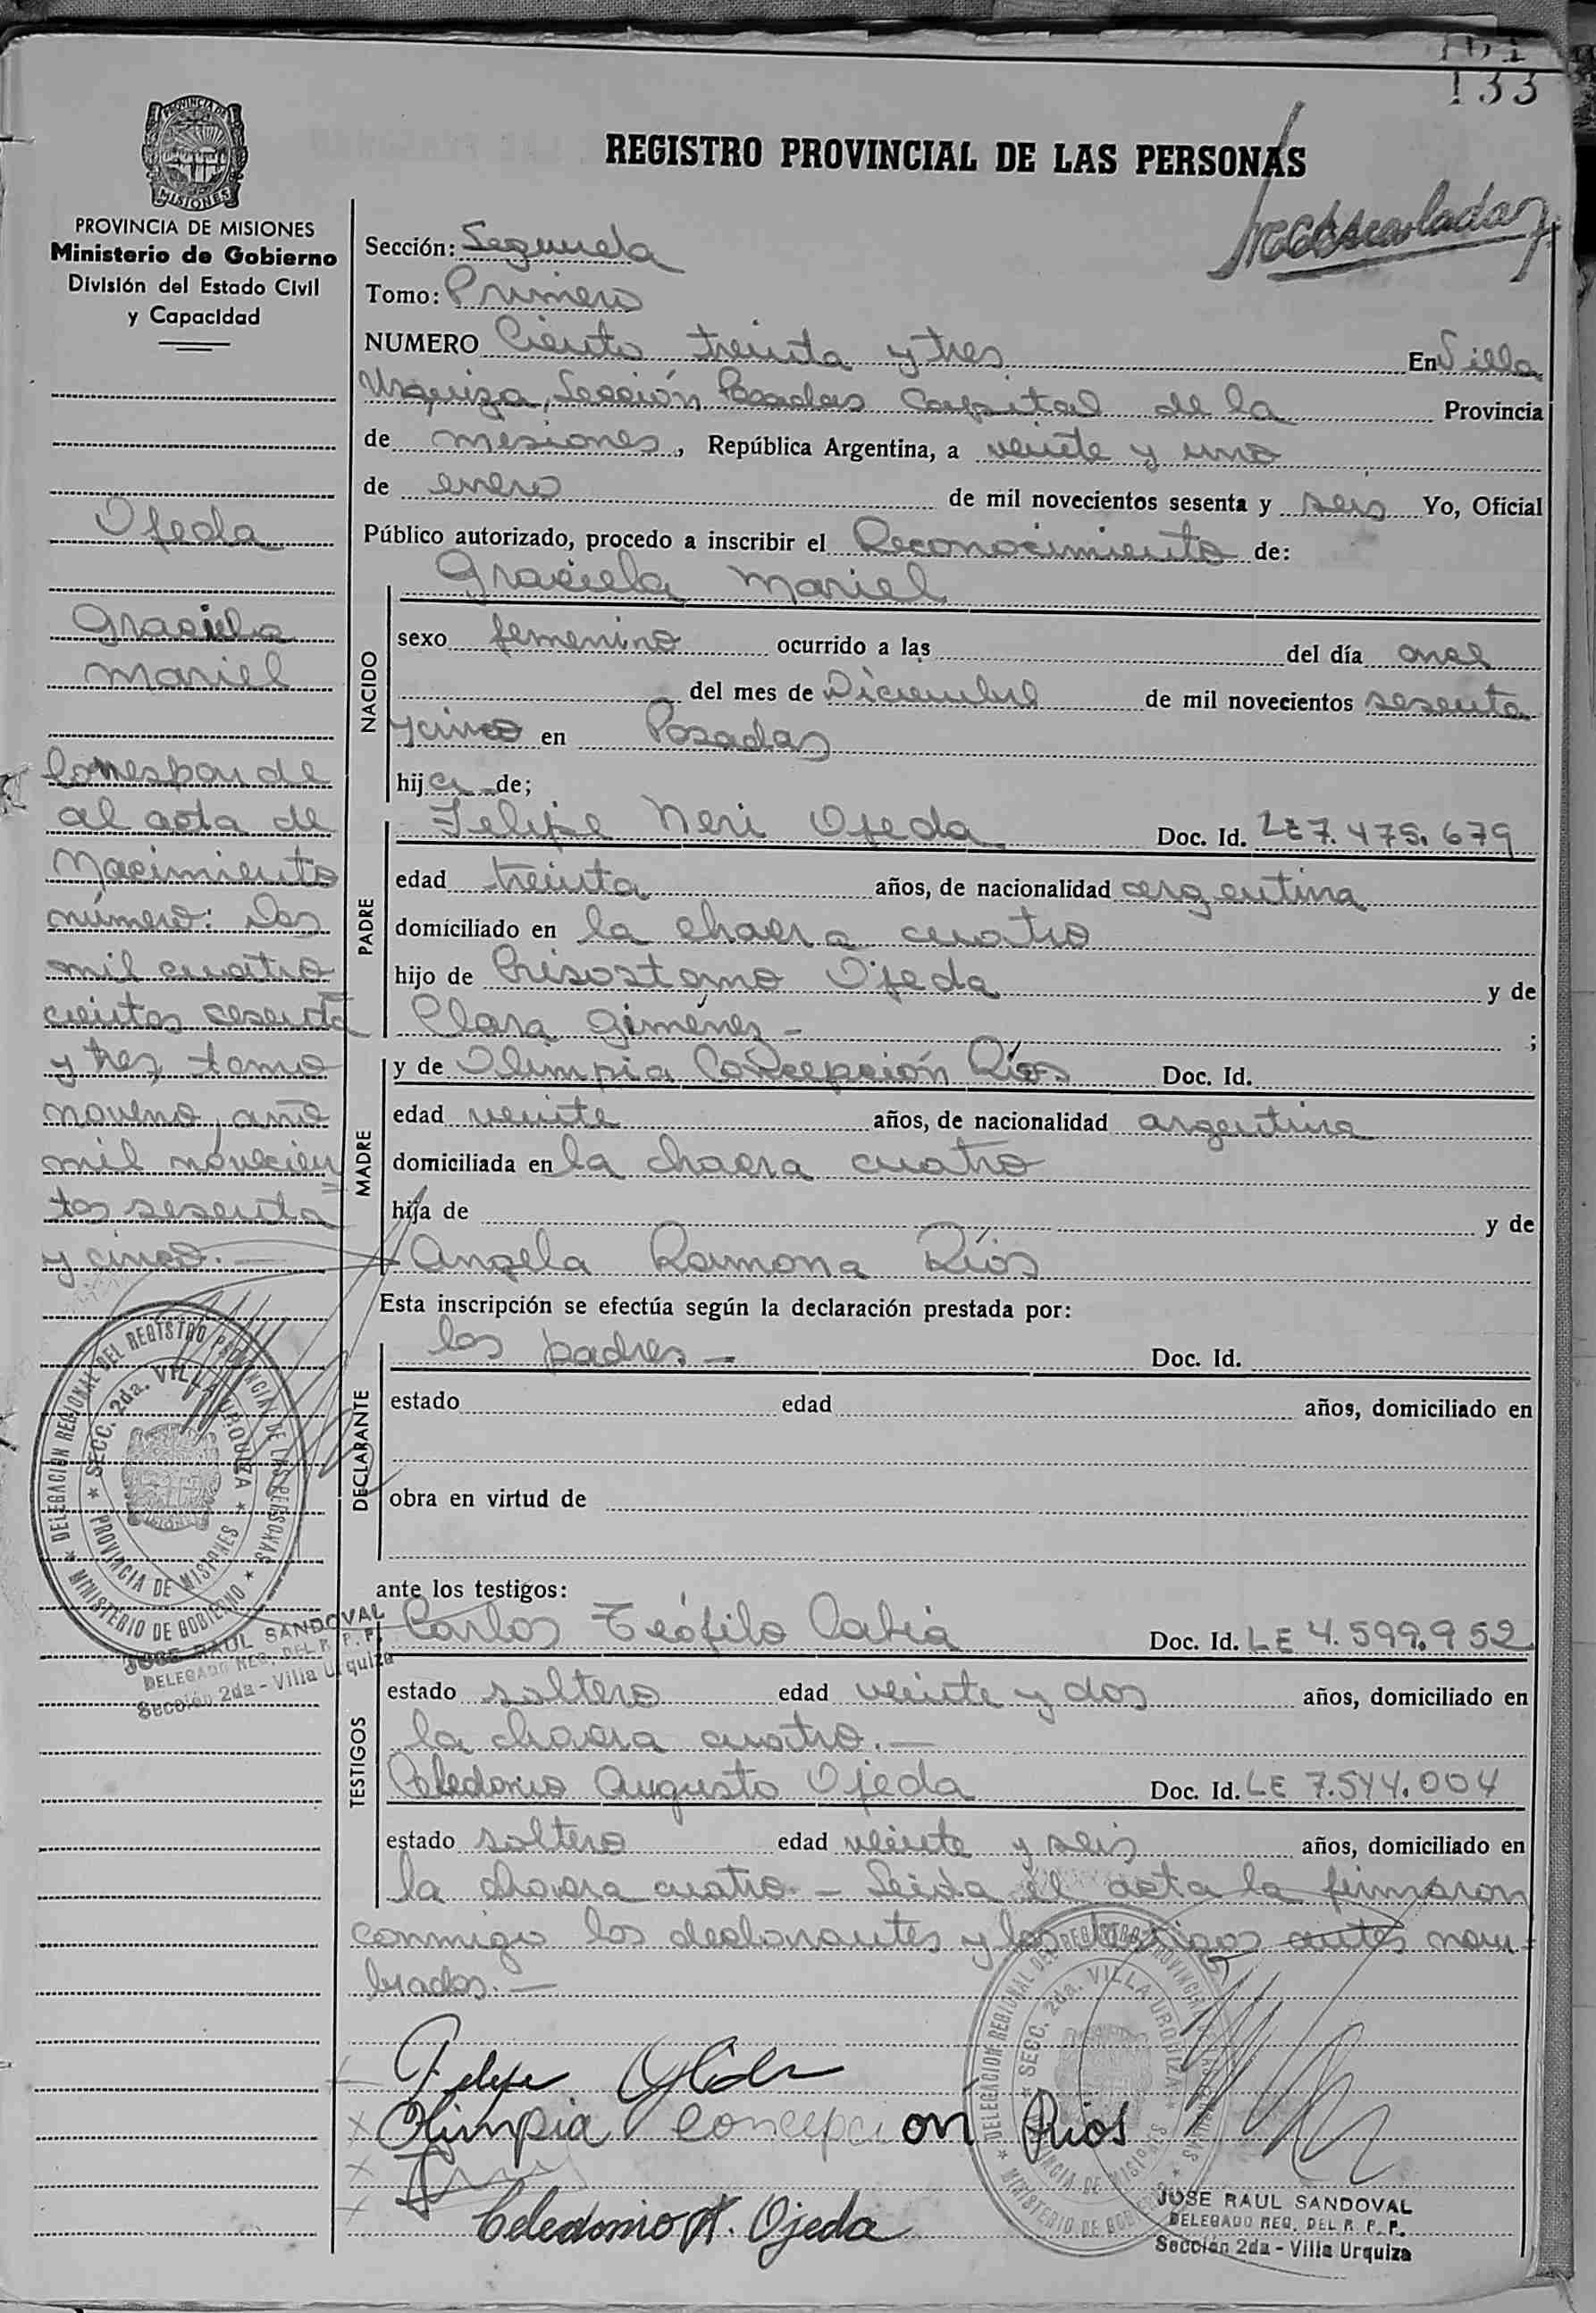 133
REGISTRO PROVINCIAL DE LAS PERSONAS
PROVINCIA DE MISIONES
MISIONES
PROVINCIA DE MISIONES
Ministerio de Gobierno
División del Estado Civil
y Capacidad
Ojeda
Graciela
Mariel
Correspon de
al acta de
Nacimiento
número: Dos
mil cuatro
cientos cesenta
y tres tomo
noveno, año
mil novecien
tos sesenta
y cinco.—
Sección: Segunda
Tomo: Primero
NUMERO Ciento treinta y tres En Villa
Urquiza, Sección Posadas Capital de la Provincia
de Misiones, República Argentina, a veinte y uno
de enero de mil novecientos sesenta y seis Yo, Oficial
Público autorizado, procedo a inscribir el Reconocimiento de:
Graciela Mariel
NACIDO
sexo femenino ocurrido a las del día once
del mes de Diciembre de mil novecientos sesenta
y cinco en Posadas
hija de;
PADRE
Felipe Neri Ojeda Doc. Id. LE 7.475.679
edad treinta años, de nacionalidad argentina
domiciliado en la chacra cuatro
hijo de Crisostomo Ojeda y de
Clara Giménez - ;
MADRE
y de Olimpia Concepción Ríos Doc. Id.
edad veinte años, de nacionalidad argentina
domiciliada en la chacra cuatro
hija de y de
Angela Ramona Ríos
Esta inscripción se efectúa según la declaración prestada por:
DECLARANTE
los padres — Doc. Id.
estado edad años, domiciliado en
obra en virtud de
ante los testigos:
TESTIGOS
Carlos Teófilo Doc. Id. LE 4.599.952
estado soltero edad veinte y dos años, domiciliado en
la chacra cuatro.—
Celedonio Augusto Ojeda Doc. Id. LE 7.544.004
estado soltero edad veinte y seis años, domiciliado en
la chacra cuatro.— Leida el acta la firmaron
conmigo los declarantes y los testigos antes nom-
brados.—
DELEGACION REGIONAL DEL REGISTRO PROVINCIAL DE LAS PERSONAS
SECC. 2da. VILLA URQUIZA
PROVINCIA DE MISIONES
MINISTERIO DE GOBIERNO
JOSE RAUL SANDOVAL
DELEGADO REG. DEL R. P. P.
Sección 2da - Villa Urquiza
Felipe Ojeda
Olimpia Concepción Ríos
Celedonio A. Ojeda
DELEGACION REGIONAL DEL REGISTRO PROVINCIAL DE LAS PERSONAS
SECC. 2da. VILLA URQUIZA
PROVINCIA DE MISIONES
MINISTERIO DE GOBIERNO
JOSE RAUL SANDOVAL
DELEGADO REG. DEL R. P. P.
Sección 2da - Villa Urquiza